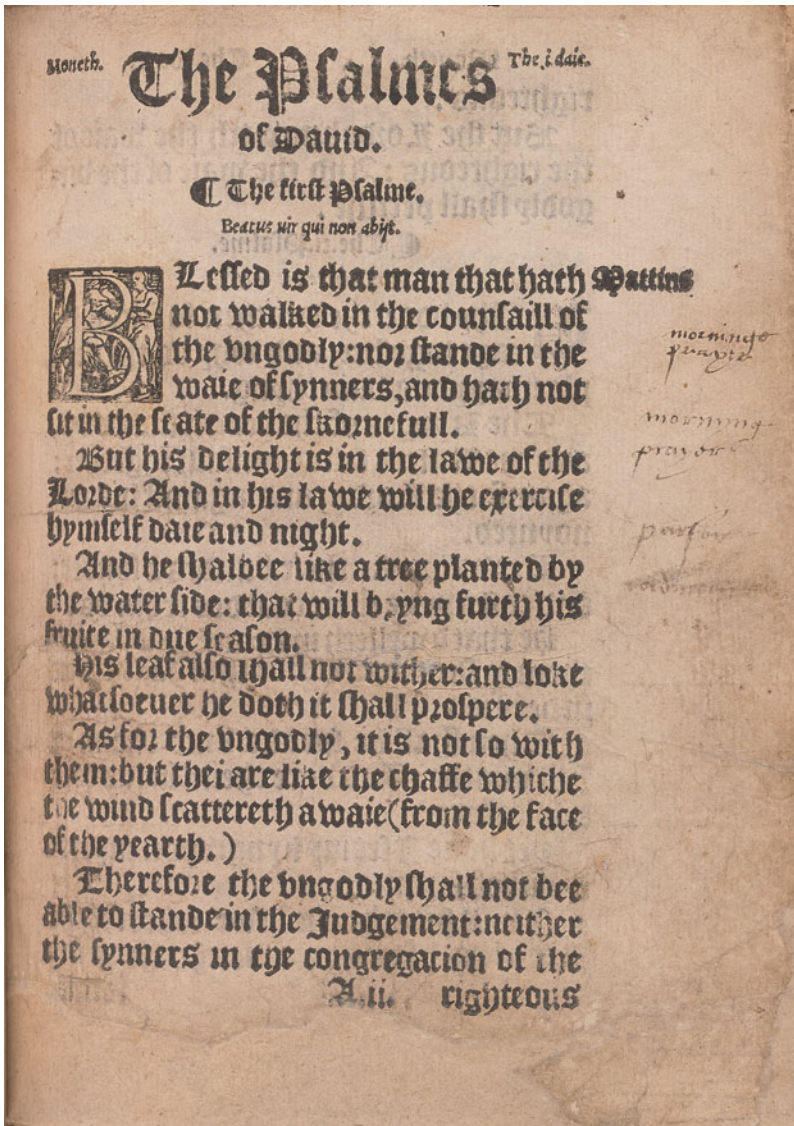 Moneth. The Psalmes The .i. daie.
of Dauid.
¶ The first Psalme.
Beatus uir qui non abijt.
BLessed is that man that hath Mattins
not walked in the counsaill of
the vngodly: nor stande in the
waie of synners, and hath not
sit in the seate of the skornefull.
But his delight is in the lawe of the
Lorde: And in his lawe will he exercise
hymself daie and night.
And he shalbee like a tree planted by
the water side: that will bryng furth his
fruite in due season.
His leaf also shall not wither: and loke
whatsoeuer he doth it shall prospere.
As for the vngodly, it is not so with
them: but thei are like the chaffe whiche
the wind scattereth awaie (from the face
of the yearth.)
Therefore the vngodly shall not bee
able to stande in the Judgement: neither
the synners in the congregacion of the
A.ii. righteous
morninge
prayer
morning
prayer